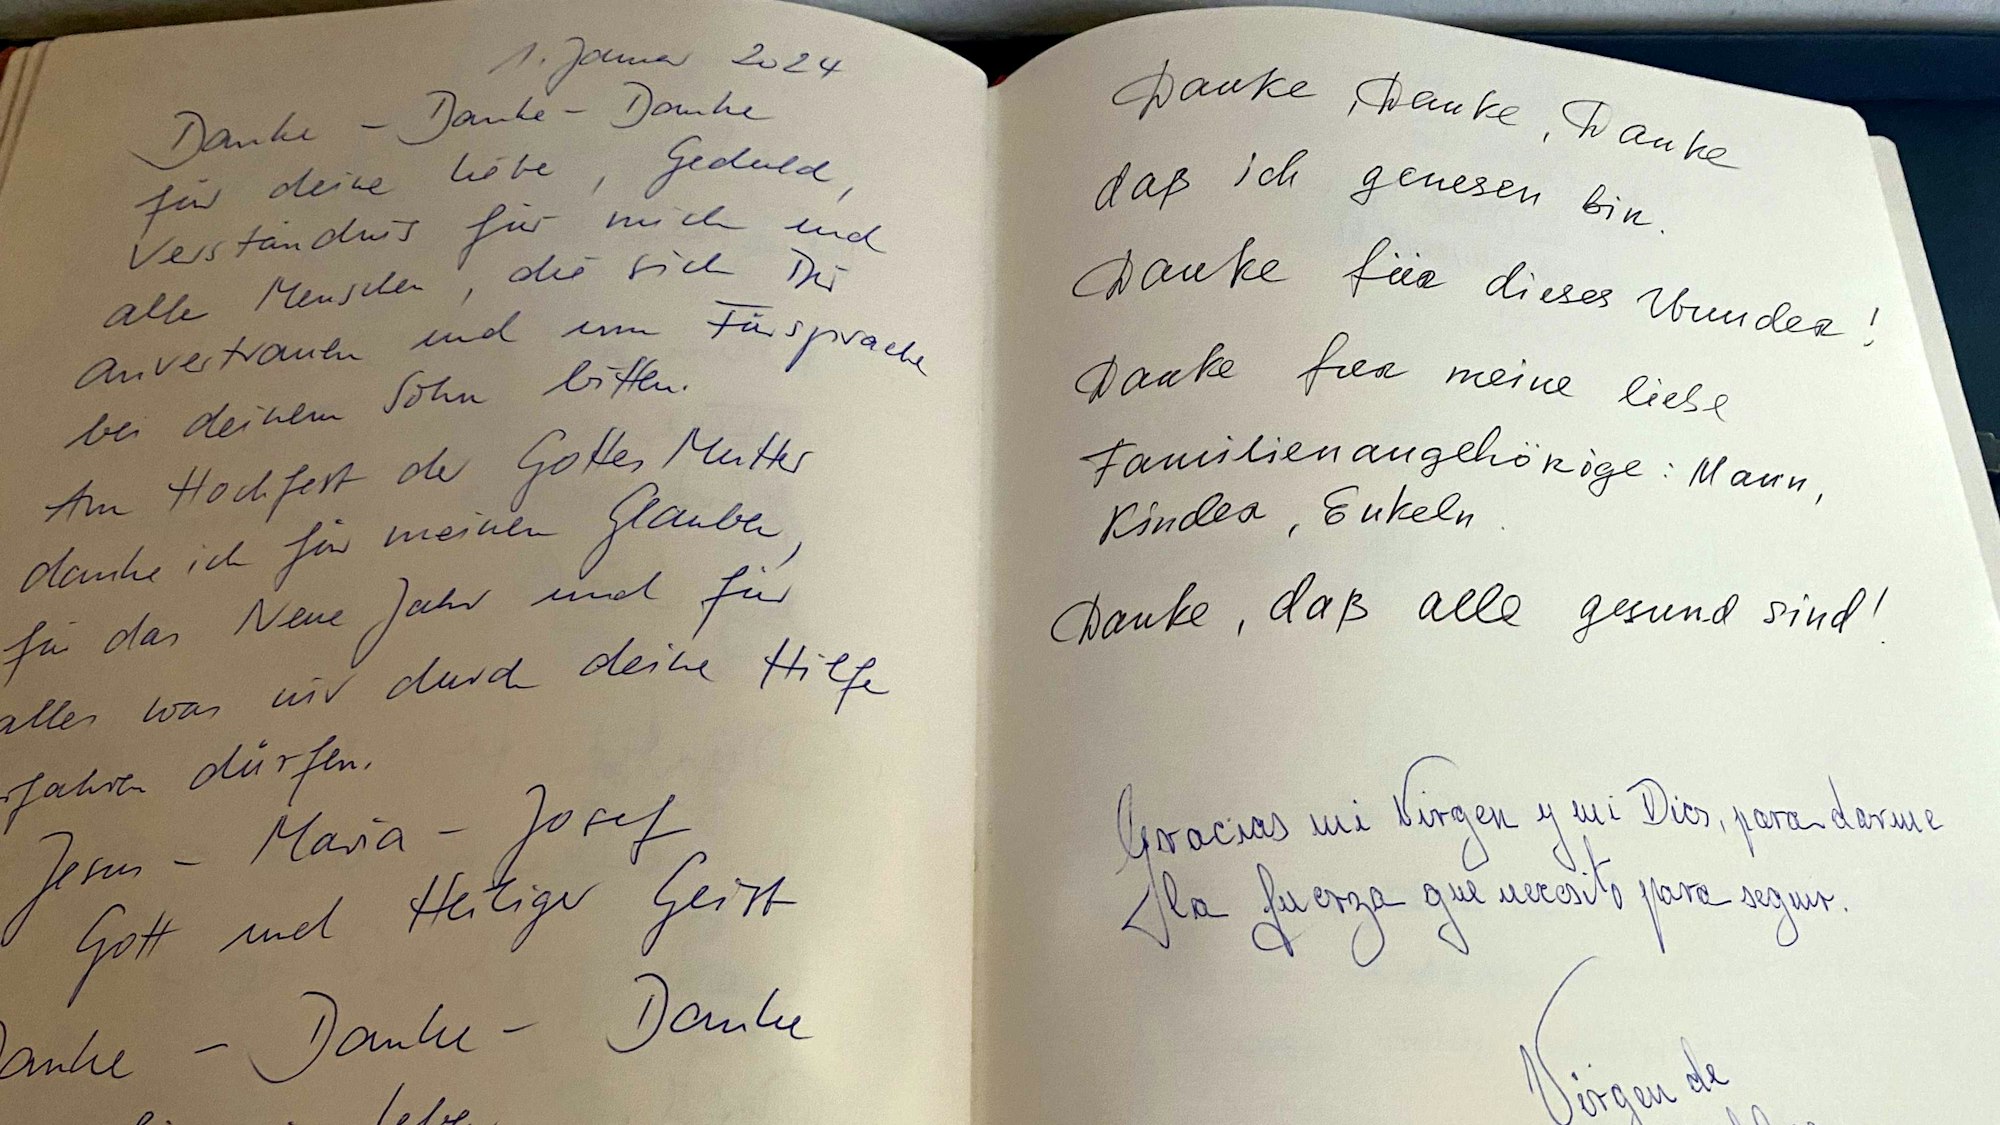 1. Januar 2024
Danke - Danke - Danke
für deine Liebe, Geduld,
Verständnis für mich und
alle Menschen, die sich Dir
anvertrauen und um Fürsprache
bei deinem Sohn bitten.
Am Hochfest der Gottes Mutter
danke ich für meinen Glauben,
für das Neue Jahr und für
alles was wir durch deine Hilfe
erfahren dürfen.
Jesus - Maria - Josef
Gott und Heiliger Geist
Danke - Danke - Danke
Danke, Danke, Danke
daß ich genesen bin.
Danke für dieses Wunder!
Danke fuer meine liebe
Familienangehörige: Mann,
Kinder, Enkeln.
Danke, daß alle gesund sind!
Gracias mi Virgen y mi Dios, para darme
la fuerza que necesito para seguir.
Virgen de